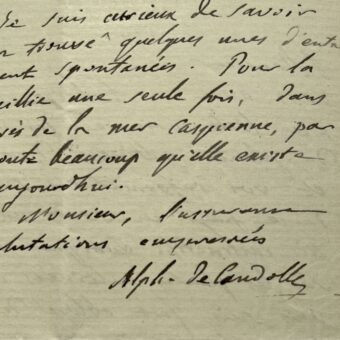 Je suis curieux de savoir
trouvé quelques unes d'entr
ent spontanées. Pour la
eillie une seule fois, dans
de la mer caspienne, par
oute beaucoup qu'elle existe
ujourdhui.
Monsieur, l'assurance
lutations empressées
Alph. de Candolle